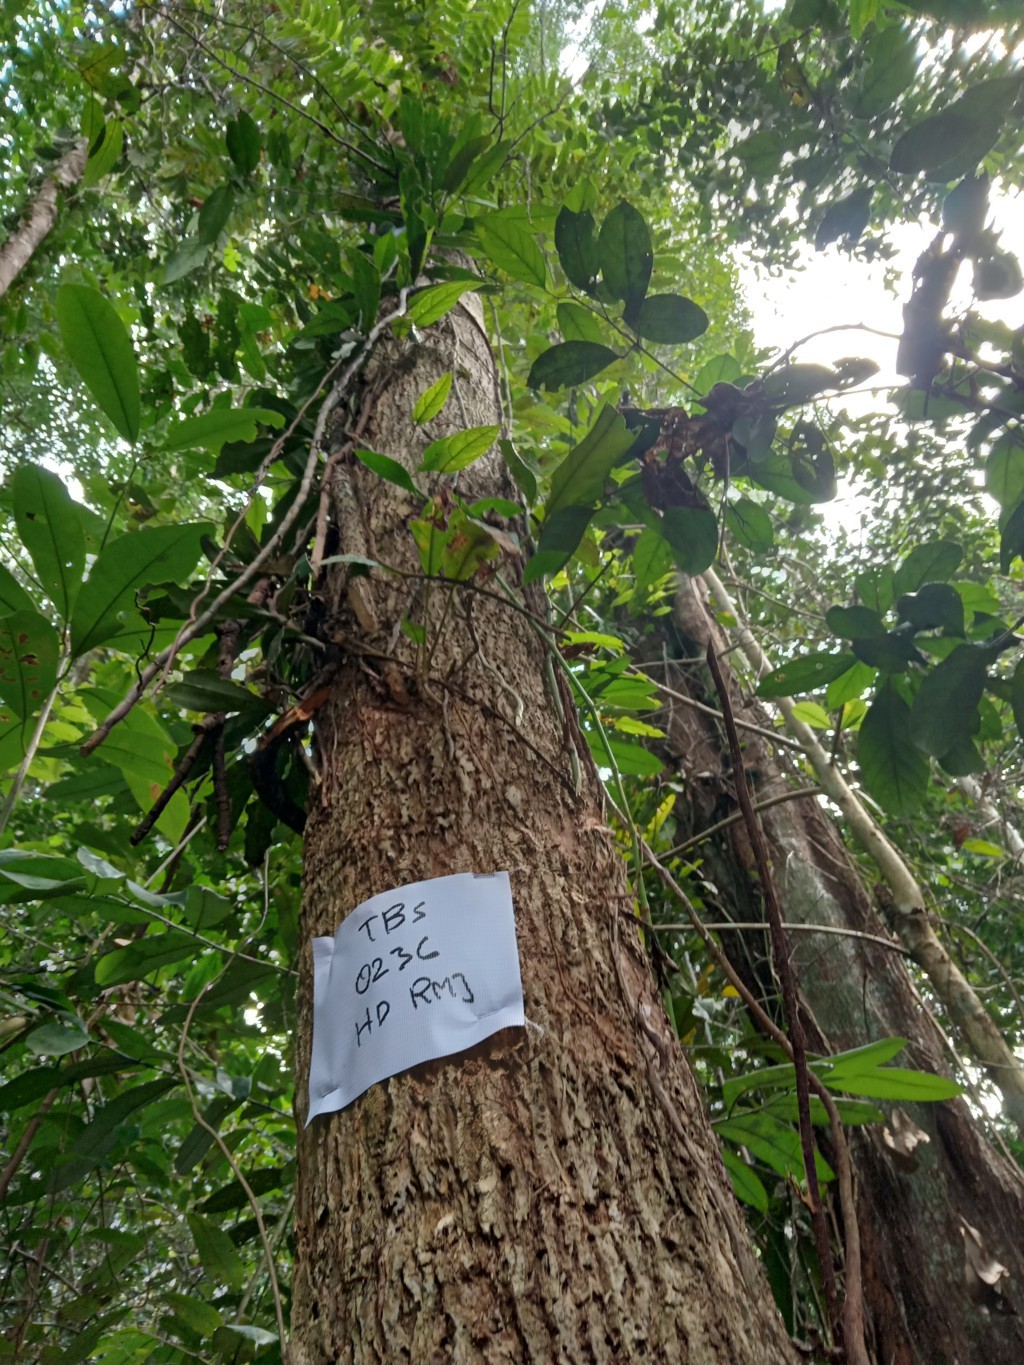 TBS
023C
HD RMJ